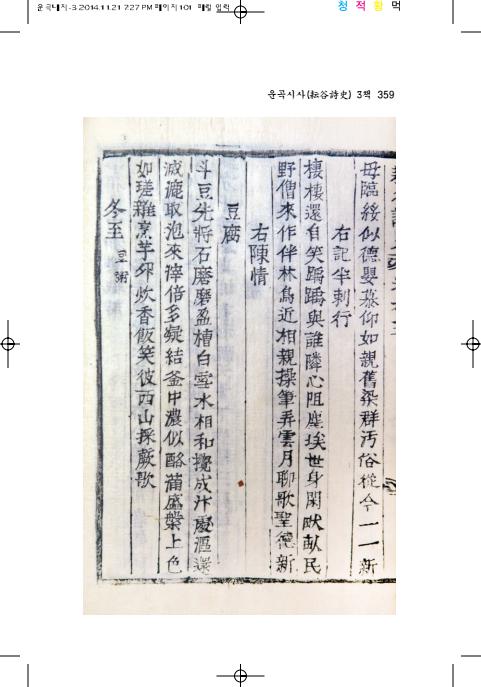 운곡내지-3 2014.11.21 7:27 PM 페이지101
청 적 황 먹
운곡시사(耘谷詩史) 3책 359
毋臨綏似德嬰慕仰如親舊染群汚俗從今一一新
右記伞刺行
棲棲還自笑踽踽與誰隣心阻塵埃世身閑畎畝民
野僧來作伴林鳥近相親操筆弄雲月聊歌聖德新
右陳情
豆腐
斗豆先將石磨磨盈槽白雪水相和攪成汁
漉取泡來滓倍多凝結釜中濃似酪滿盛槃上色
如瑳雜烹芋卵炊香飯笑彼西山採蕨歌
冬至 豆粥